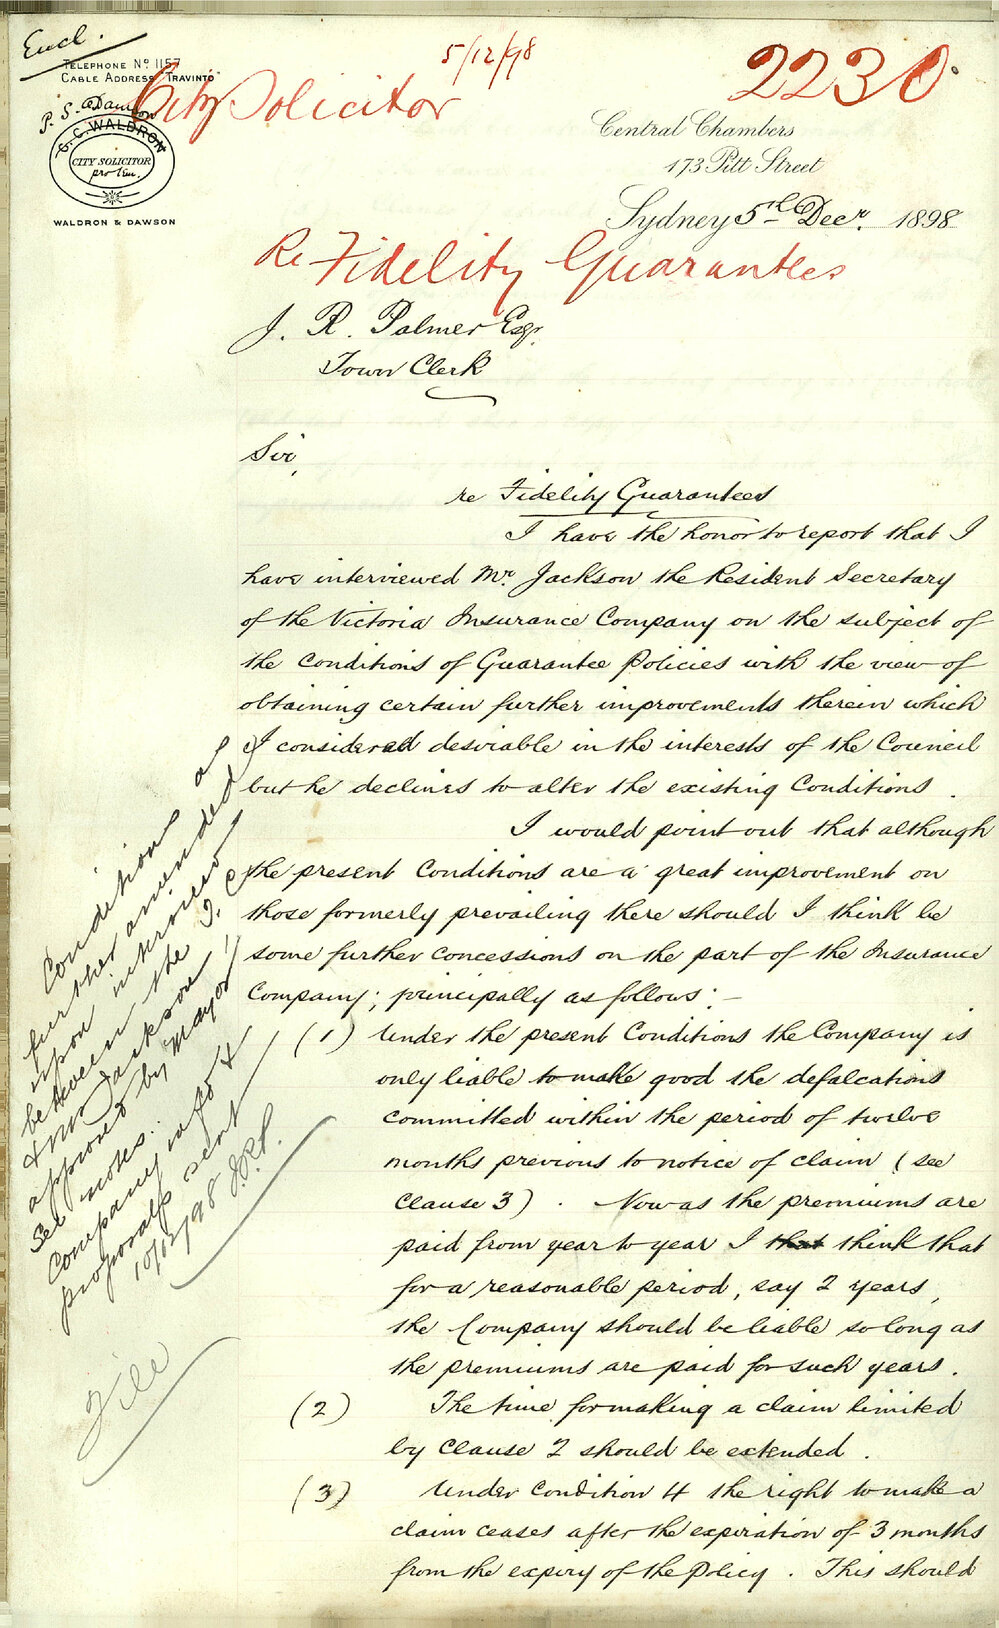 Encl.
TELEPHONE No 1157
CABLE ADDRESS "TRAVINTO"
5/12/98
2230
City Solicitor
P. S. Dawson
C. C. WALDRON
CITY SOLICITOR
pro tem.
WALDRON & DAWSON
Central Chambers
173 Pitt Street
Sydney 5th Decr. 1898
Re Fidelity Guarantees
J. R. Palmer Esqr.
Town Clerk
Sir,
re Fidelity Guarantees
I have the honor to report that I
have interviewed Mr. Jackson the Resident Secretary
of the Victoria Insurance Company on the subject of
the conditions of Guarantee Policies with the view of
obtaining certain further improvements therein which
I considered desirable in the interests of the Council
but he declines to alter the existing Conditions.
I would point out that although
the present Conditions are a great improvement on
those formerly prevailing there should I think be
some further concessions on the part of the Insurance
Company; principally as follows:—
(1) Under the present Conditions the Company is
only liable to make good the defalcations
committed within the period of twelve
months previous to notice of claim (see
Clause 3). Now as the premiums are
paid from year to year I that think that
for a reasonable period, say 2 years,
the Company should be liable so long as
the premiums are paid for such years.
(2) The time for making a claim limited
by Clause 2 should be extended.
(3) Under Condition 4 the right to make a
claim ceases after the expiration of 3 months
from the expiry of the Policy. This should
Condition as
further amended
upon interview
between the T. C.
& Mr Jackson
approved by Mayor
See notes.
Company info &
proposals sent
10/12/98 J.R.P.
File